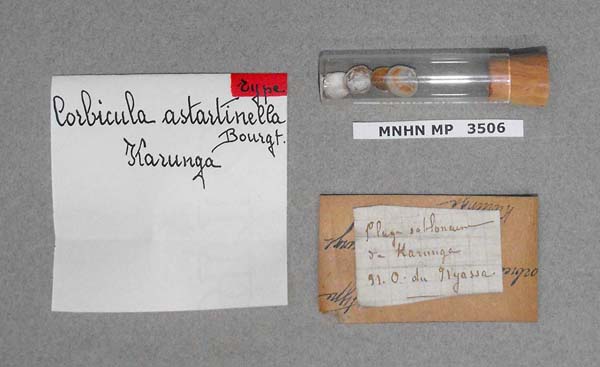 Type.
Corbicula astartinella
Bourgt.
Karunga
MNHN MP 3506
Plage sablonneuse
de Karunga
N. O. du Nyassa
Karunga
type